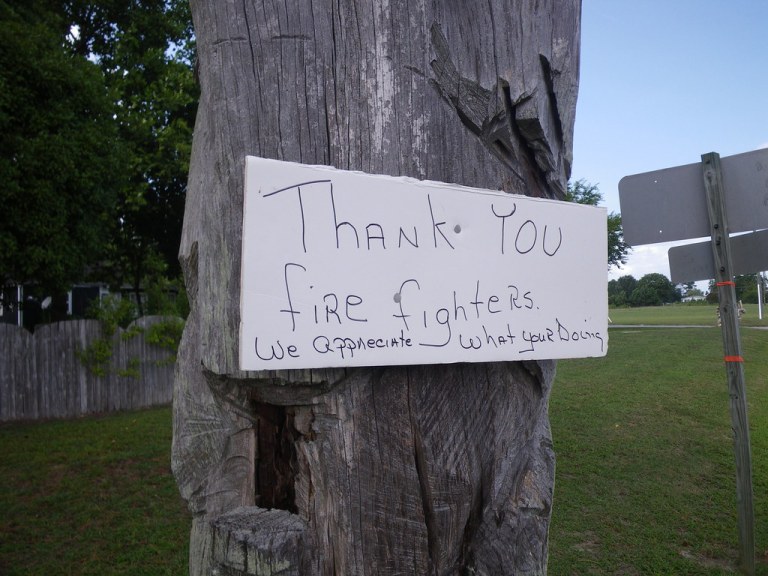 Thank You
fire fighters.
We Appreciate what your Doing